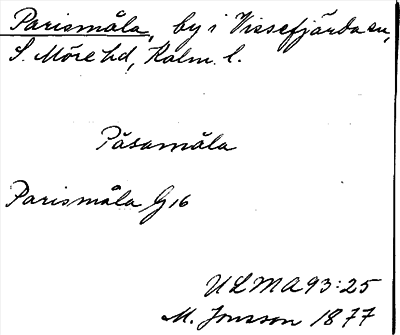 Parismåla, by i Vissefjärda sn,
S. Möre hd, Kalm. l.
Påsamåla
Parismåla G16
ULMA 93:25
M. Jonsson 1877